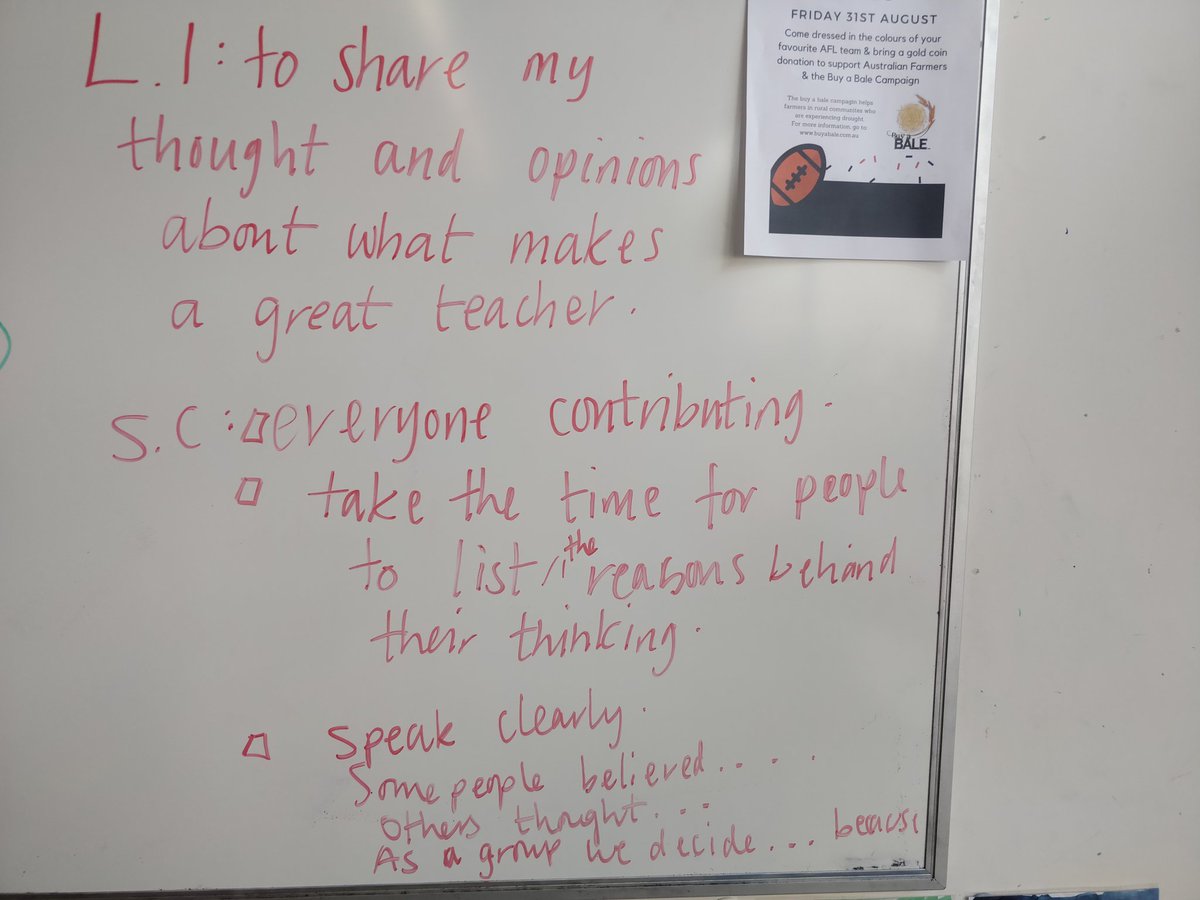 L.I: to share my
thought and opinions
about what makes
a great teacher.
S.C: everyone contributing.
take the time for people
to list / the reasons behind
their thinking.
speak clearly.
Some people believed.....
Others thought...
As a group we decide... becaus
FRIDAY 31ST AUGUST
Come dressed in the colours of your
favourite AFL team & bring a gold coin
donation to support Australian Farmers
& the Buy a Bale Campaign
The buy a bale campagin helps
farmers in rural communites who
are experiencing drought
For more information, go to
www.buyabale.com.au
Buy a
BALE